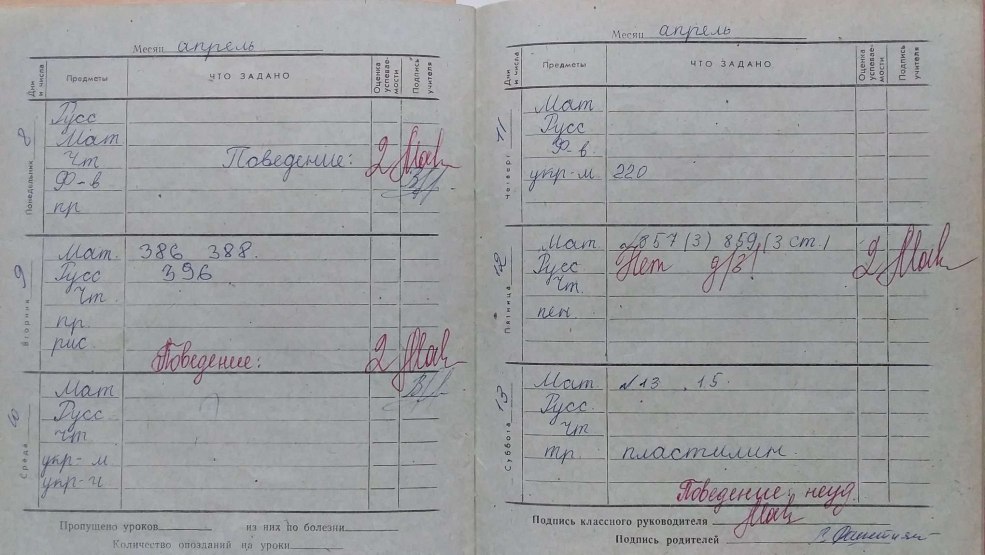 Месяц апрель
Дни и числа Предметы ЧТО ЗАДАНО Оценка успеваемости Подпись учителя
Понедельник 8
Русс
Мат
Чт Поведение: 2
Ф-в
пр
Вторник 9
Мат. 386 388.
Русс 396
Чт
пр.
рис.
Поведение: 2
Среда 10
Мат
Русс
Чт
укр-м
укр-ч
Пропущено уроков из них по болезни
Количество опозданий на уроки
Месяц апрель
Дни и числа Предметы ЧТО ЗАДАНО Оценка успеваемости Подпись учителя
Четверг 11
Мат
Русс
Ф-в.
укр-м. 220
Пятница 12
Мат. 857 (3) 859 (3 ст.)
Русс Нет д/з! 2
Чт.
пен.
Суббота 13
Мат №13 15.
Русс.
Чт
тр. пластилин.
Поведение: неуд.
Подпись классного руководителя
Подпись родителей